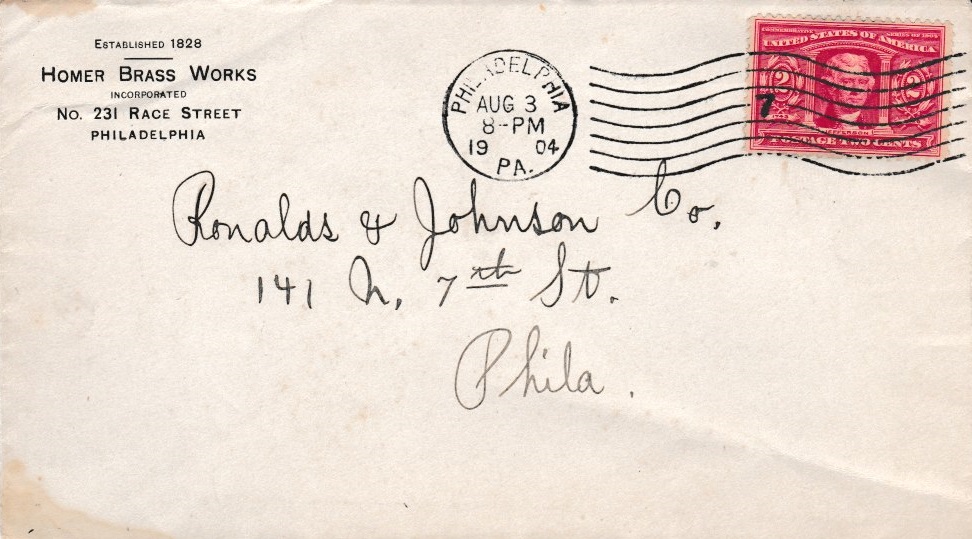 Established 1828
Homer Brass Works
INCORPORATED
No. 231 Race Street
PHILADELPHIA
PHILADELPHIA
AUG 3
8-PM
19 04
PA.
COMMEMORATIVE SERIES OF 1904
UNITED STATES OF AMERICA
2 2
7
1743
JEFFERSON
POSTAGE TWO CENTS
Ronalds & Johnson Co.
141 N. 7th St.
Phila.